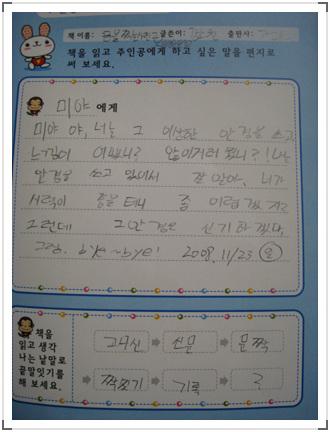 책 이름: 글쓴이: 출판사:
책을 읽고 주인공에게 하고 싶은 말을 편지로
써 보세요.
미야 에게
미야 야, 너는 그 이상한 안경을 쓰고
느낌이 어땠니? 않이거려 웠니?! 나는
안경을 쓰고 있어서 잘 알아, 니가
시력이 좋을 테니 좀 어렵겠지?
그런데 그 안경은 신기하겠다,
그럼. bye~bye! 2008. 11/23 일
책을
읽고 생각
나는 낱말로
끝말잇기를
해 보세요.
고나신 → 신문 → 문짝
→ 짝꼬기 → 기록 → ?